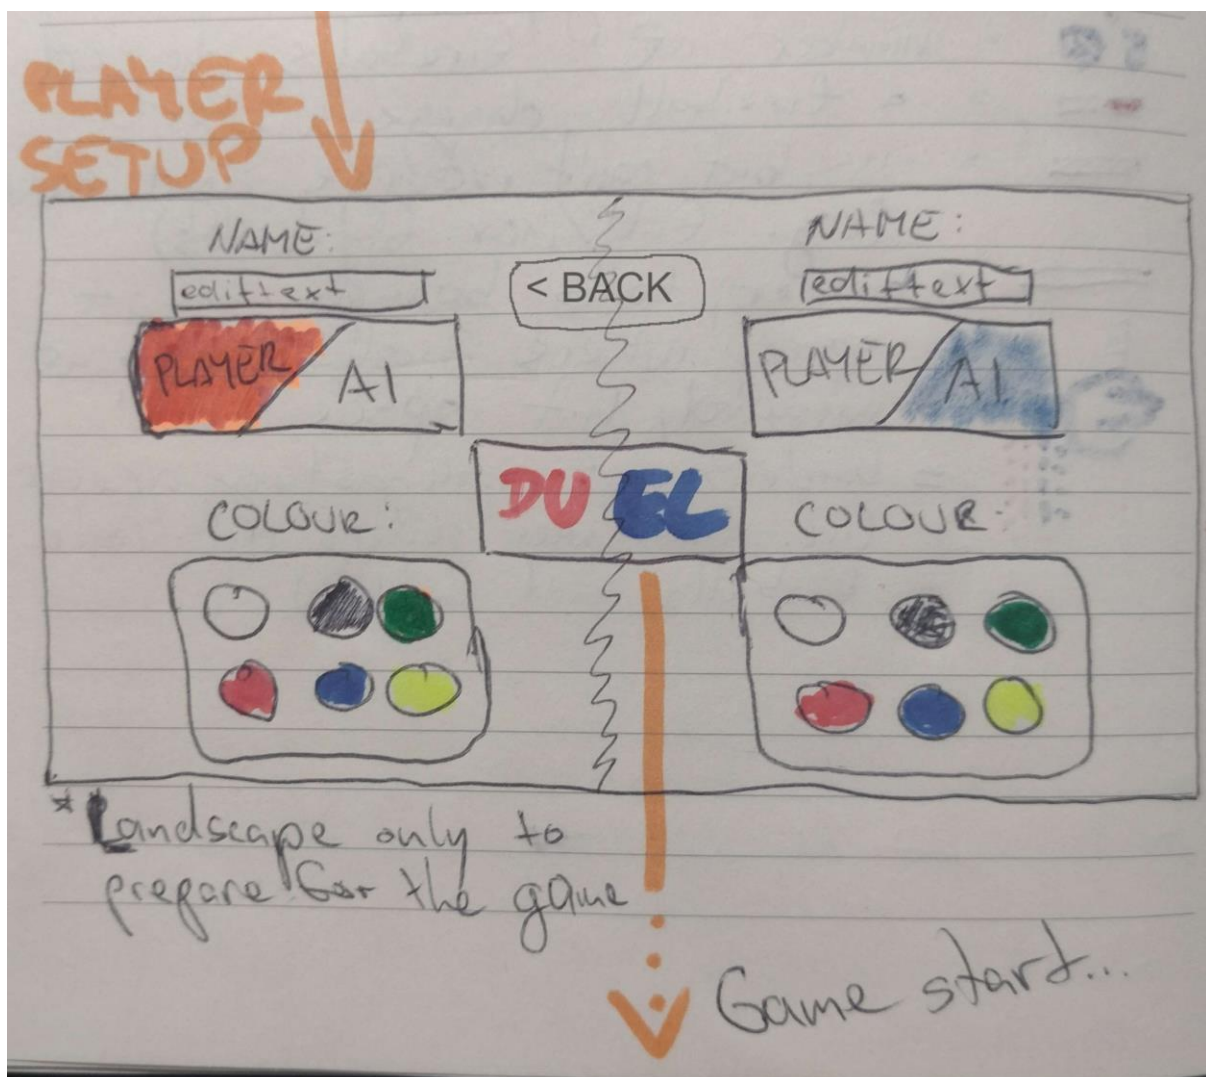 PLAYER
SETUP
NAME:
edittext
PLAYER AI
COLOUR:
< BACK
DUEL
NAME:
edittext
PLAYER AI
COLOUR
* Landscape only to
prepare for the game
Game start...